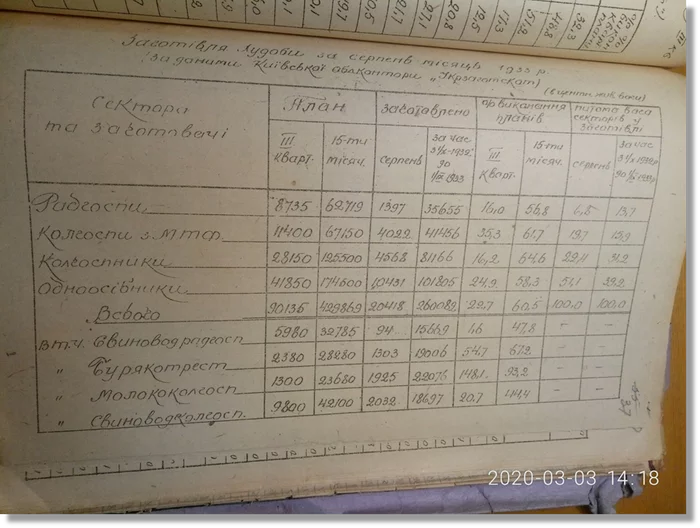 Заготівля худоби за серпень місяць 1933 р.
(За даними Київської облконтори „Укрзаготскот)
(в центн. жив. ваги)
Сектори та заготовачі План Заготовлено % виконання планів питома вага секторів у заготівлі
III кварт. 15-ти місяч. серпень за час з 1/VI-1932 до 1/IX 1933 III кварт. 15-ти місяч. серпень
Радгоспи 8735 62719 1397 35655 16,0 56,8 6,8 13,7
Колгоспи з МТФ 11400 67150 4022 41456 35,3 61,7 19,7 15,9
Колгоспники 28150 125500 4568 81166 16,2 64,6 22,4 31,2
Одноосібники 41850 174600 10431 101805 24,9 58,3 51,1 39,2
Всього 90135 429869 20418 260082 22,7 60,5 100,0 100,0
в т.ч. Свиноводрадгосп 5980 32785 94 15669 1,6 47,8 – –
„ Бурякотрест 2380 28280 1303 19006 54,7 67,2 – –
„ Молококолгосп 1300 23680 1925 22076 148,1 93,2 – –
„ Свиноводколгосп 9800 42100 2032 18697 20,7 44,4 – –
37
2020-03-03 14:18